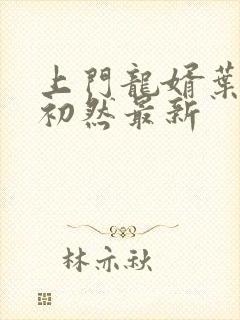 上門龍婿葉
初然最新
林亦秋